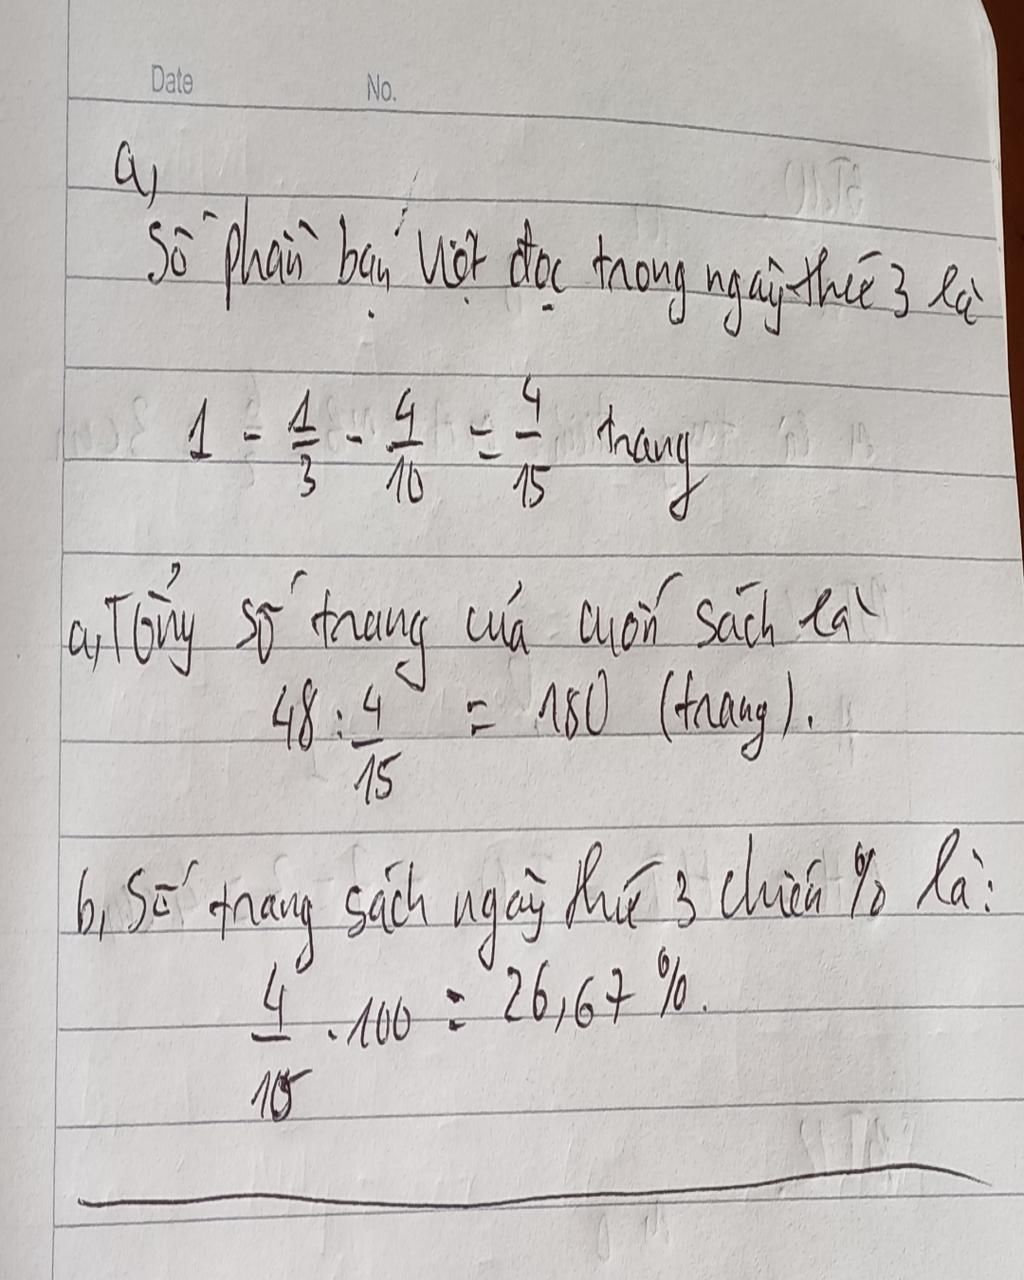 Date No.
a,
Số phần bạn Việt đọc trong ngày thứ 3 là
1 - 1/3 - 4/10 = 4/15 trang
a, Tổng số trang của cuốn sách là
48 : 4/15 = 180 (trang).
b, Số trang sách ngày thứ 3 chiếm % là:
4/15 . 100 = 26,67 %.